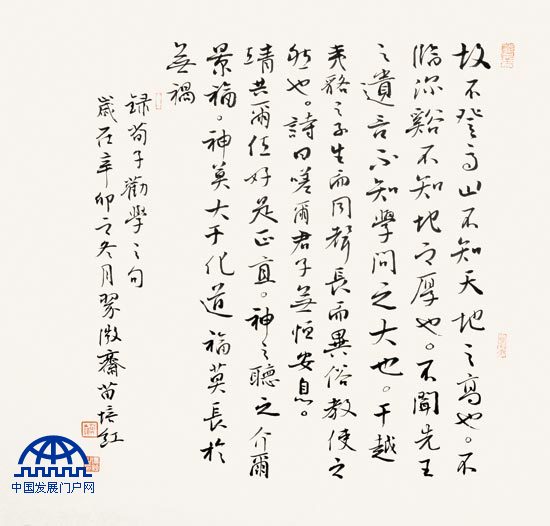 故不登高山不知天地之高也。不
臨深谿不知地之厚也。不聞先王
之遺言不知學問之大也。干越
夷貉之子生而同聲長而異俗教使之
然也。詩曰嗟爾君子無恒安息。
靖共爾位好是正直。神之聽之介爾
景福。神莫大于化道福莫長於
無禍
録荀子勸學之句
歲在辛卯之冬月翠微齋苗培红
中国发展门户网